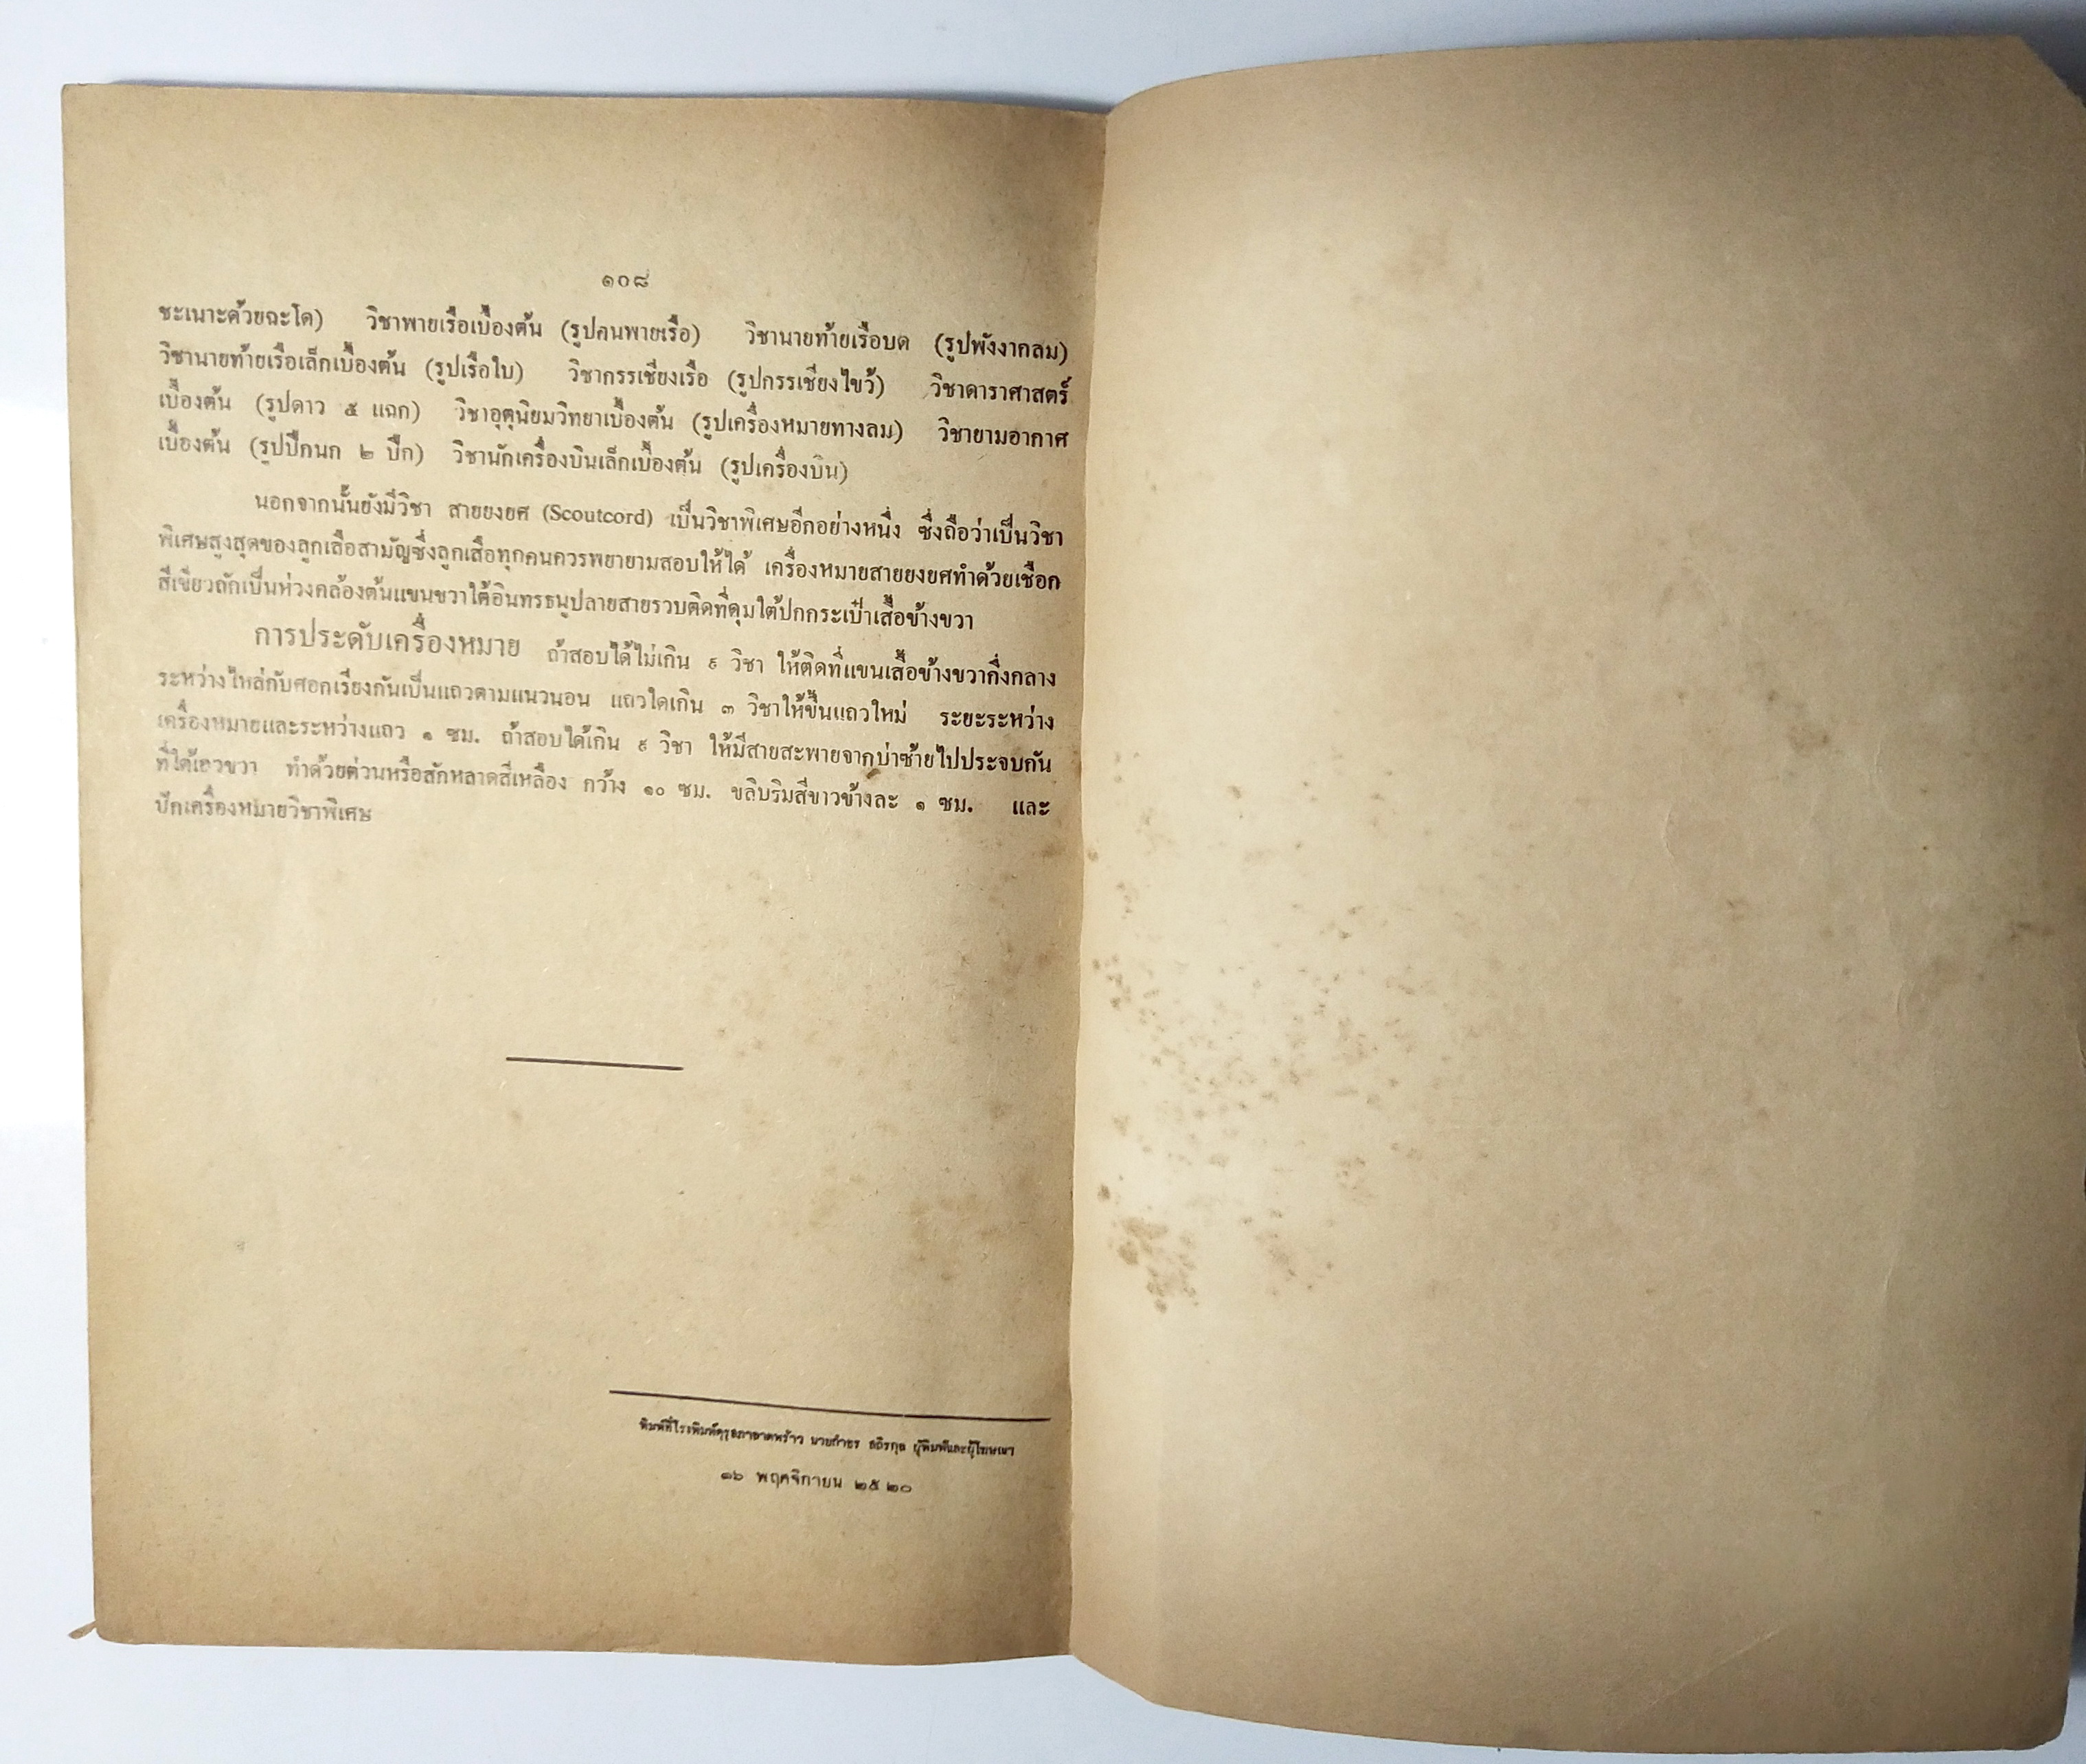 ๑๐๘
ชะเนาะด้วยฉะโด) วิชาพายเรือเบื้องต้น (รูปคนพายเรือ) วิชานายท้ายเรือบด (รูปพังงากลม)
วิชานายท้ายเรือเล็กเบื้องต้น (รูปเรือใบ) วิชากรรเชียงเรือ (รูปกรรเชียงไขว้) วิชาดาราศาสตร์
เบื้องต้น (รูปดาว ๕ แฉก) วิชาอุตุนิยมวิทยาเบื้องต้น (รูปเครื่องหมายทางลม) วิชายามอากาศ
เบื้องต้น (รูปปีกนก ๒ ปีก) วิชานักเครื่องบินเล็กเบื้องต้น (รูปเครื่องบิน)
นอกจากนั้นยังมีวิชา สายยงยศ (Scoutcord) เป็นวิชาพิเศษอีกอย่างหนึ่ง ซึ่งถือว่าเป็นวิชา
พิเศษสูงสุดของลูกเสือสามัญซึ่งลูกเสือทุกคนควรพยายามสอบให้ได้ เครื่องหมายสายยงยศทำด้วยเชือก
สีเขียวถักเป็นห่วงคล้องต้นแขนขวาใต้อินทรธนูปลายสายรวบติดที่ดุมใต้ปกกระเป๋าเสื้อข้างขวา
การประดับเครื่องหมาย ถ้าสอบได้ไม่เกิน ๙ วิชา ให้ติดที่แขนเสื้อข้างขวากึ่งกลาง
ระหว่างไหล่กับศอกเรียงกันเป็นแถวตามแนวนอน แถวใดเกิน ๓ วิชาให้ขึ้นแถวใหม่ ระยะระหว่าง
เครื่องหมายและระหว่างแถว ๑ ซม. ถ้าสอบได้เกิน ๙ วิชา ให้มีสายสะพายจากบ่าซ้ายไปประจบกัน
ที่ใต้เอวขวา ทำด้วยต่วนหรือสักหลาดสีเหลือง กว้าง ๑๐ ซม. ขลิบริมสีขาวข้างละ ๑ ซม. และ
ปักเครื่องหมายวิชาพิเศษ
พิมพ์ที่โรงพิมพ์คุรุสภาลาดพร้าว นายกำธร สถิรกุล ผู้พิมพ์และผู้โฆษณา
๑๖ พฤศจิกายน ๒๕๒๐